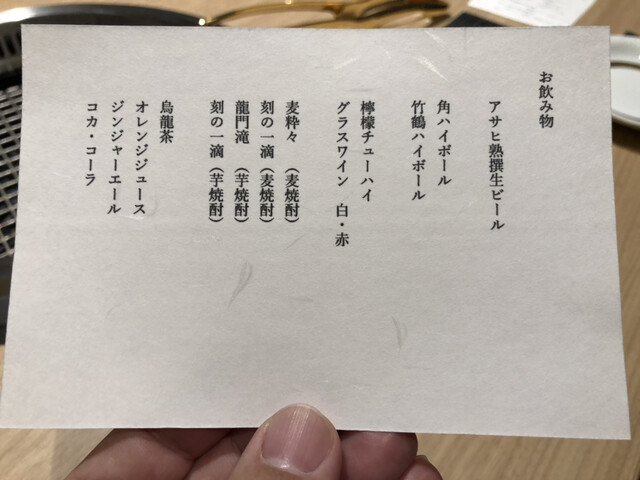 お飲み物
アサヒ熟撰生ビール
角ハイボール
竹鶴ハイボール
檸檬チューハイ
グラスワイン 白・赤
麦粋々 (麦焼酎)
刻の一滴 (麦焼酎)
龍門滝 (芋焼酎)
刻の一滴 (芋焼酎)
烏龍茶
オレンジジュース
ジンジャーエール
コカ・コーラ